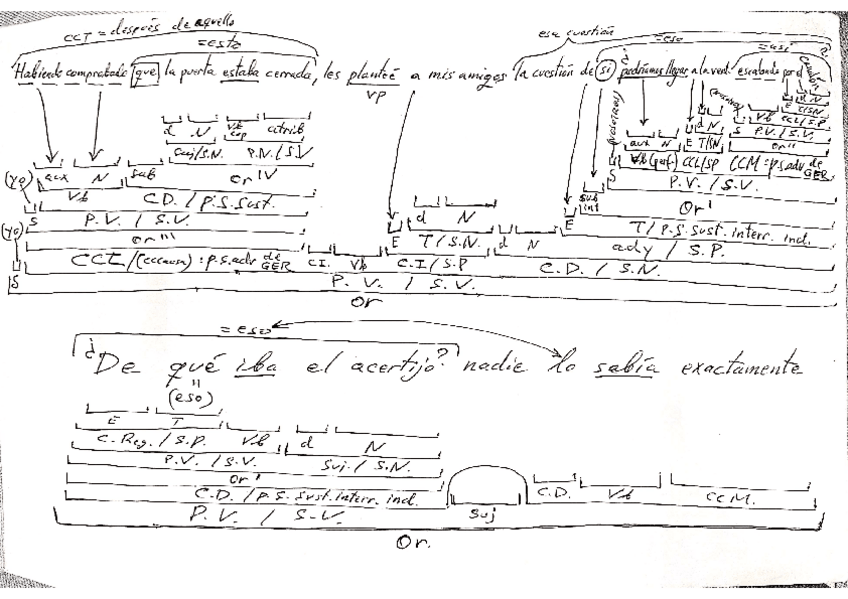 CCT = después de aquello
esa cuestión
= esto
= eso
= así
Habiendo comprobado que la puerta estaba cerrada, les planteé a mis amigos la cuestión de si podríamos llegar a la vent. escalando por el
VP
d N Vb cop atrib
Suj/S.N. P.V./S.V.
(yo) aux N Sub Or IV
Vb C.D. / P.S. Sust.
S P.V. / S.V.
(yo) Or'''
CCT/(CCcausa): p.s. adv de GER C.I. Vb C.I/S.P C.D. / S.N.
E T/S.N. d N ady / S.P.
d N E T / P.S. Sust. interr. ind.
Sub int Or'
S P.V. / S.V.
Vb (perf) CCL/SP CCM: p.s. adv de GER
aux N E T/SN Or''
d N S P.V. / S.V.
Vb CCL/S.P.
E T/SN
N
S P.V. / S.V.
Or
= eso
¿De qué iba el acertijo? nadie lo sabía exactamente
(eso)
E T
C. Reg. / S.P. Vb d N
P.V. / S.V. Suj. / S.N.
Or'
C.D. / P.S. Sust. interr. ind. Suj C.D. Vb CCM.
P.V. / S.V.
Or.